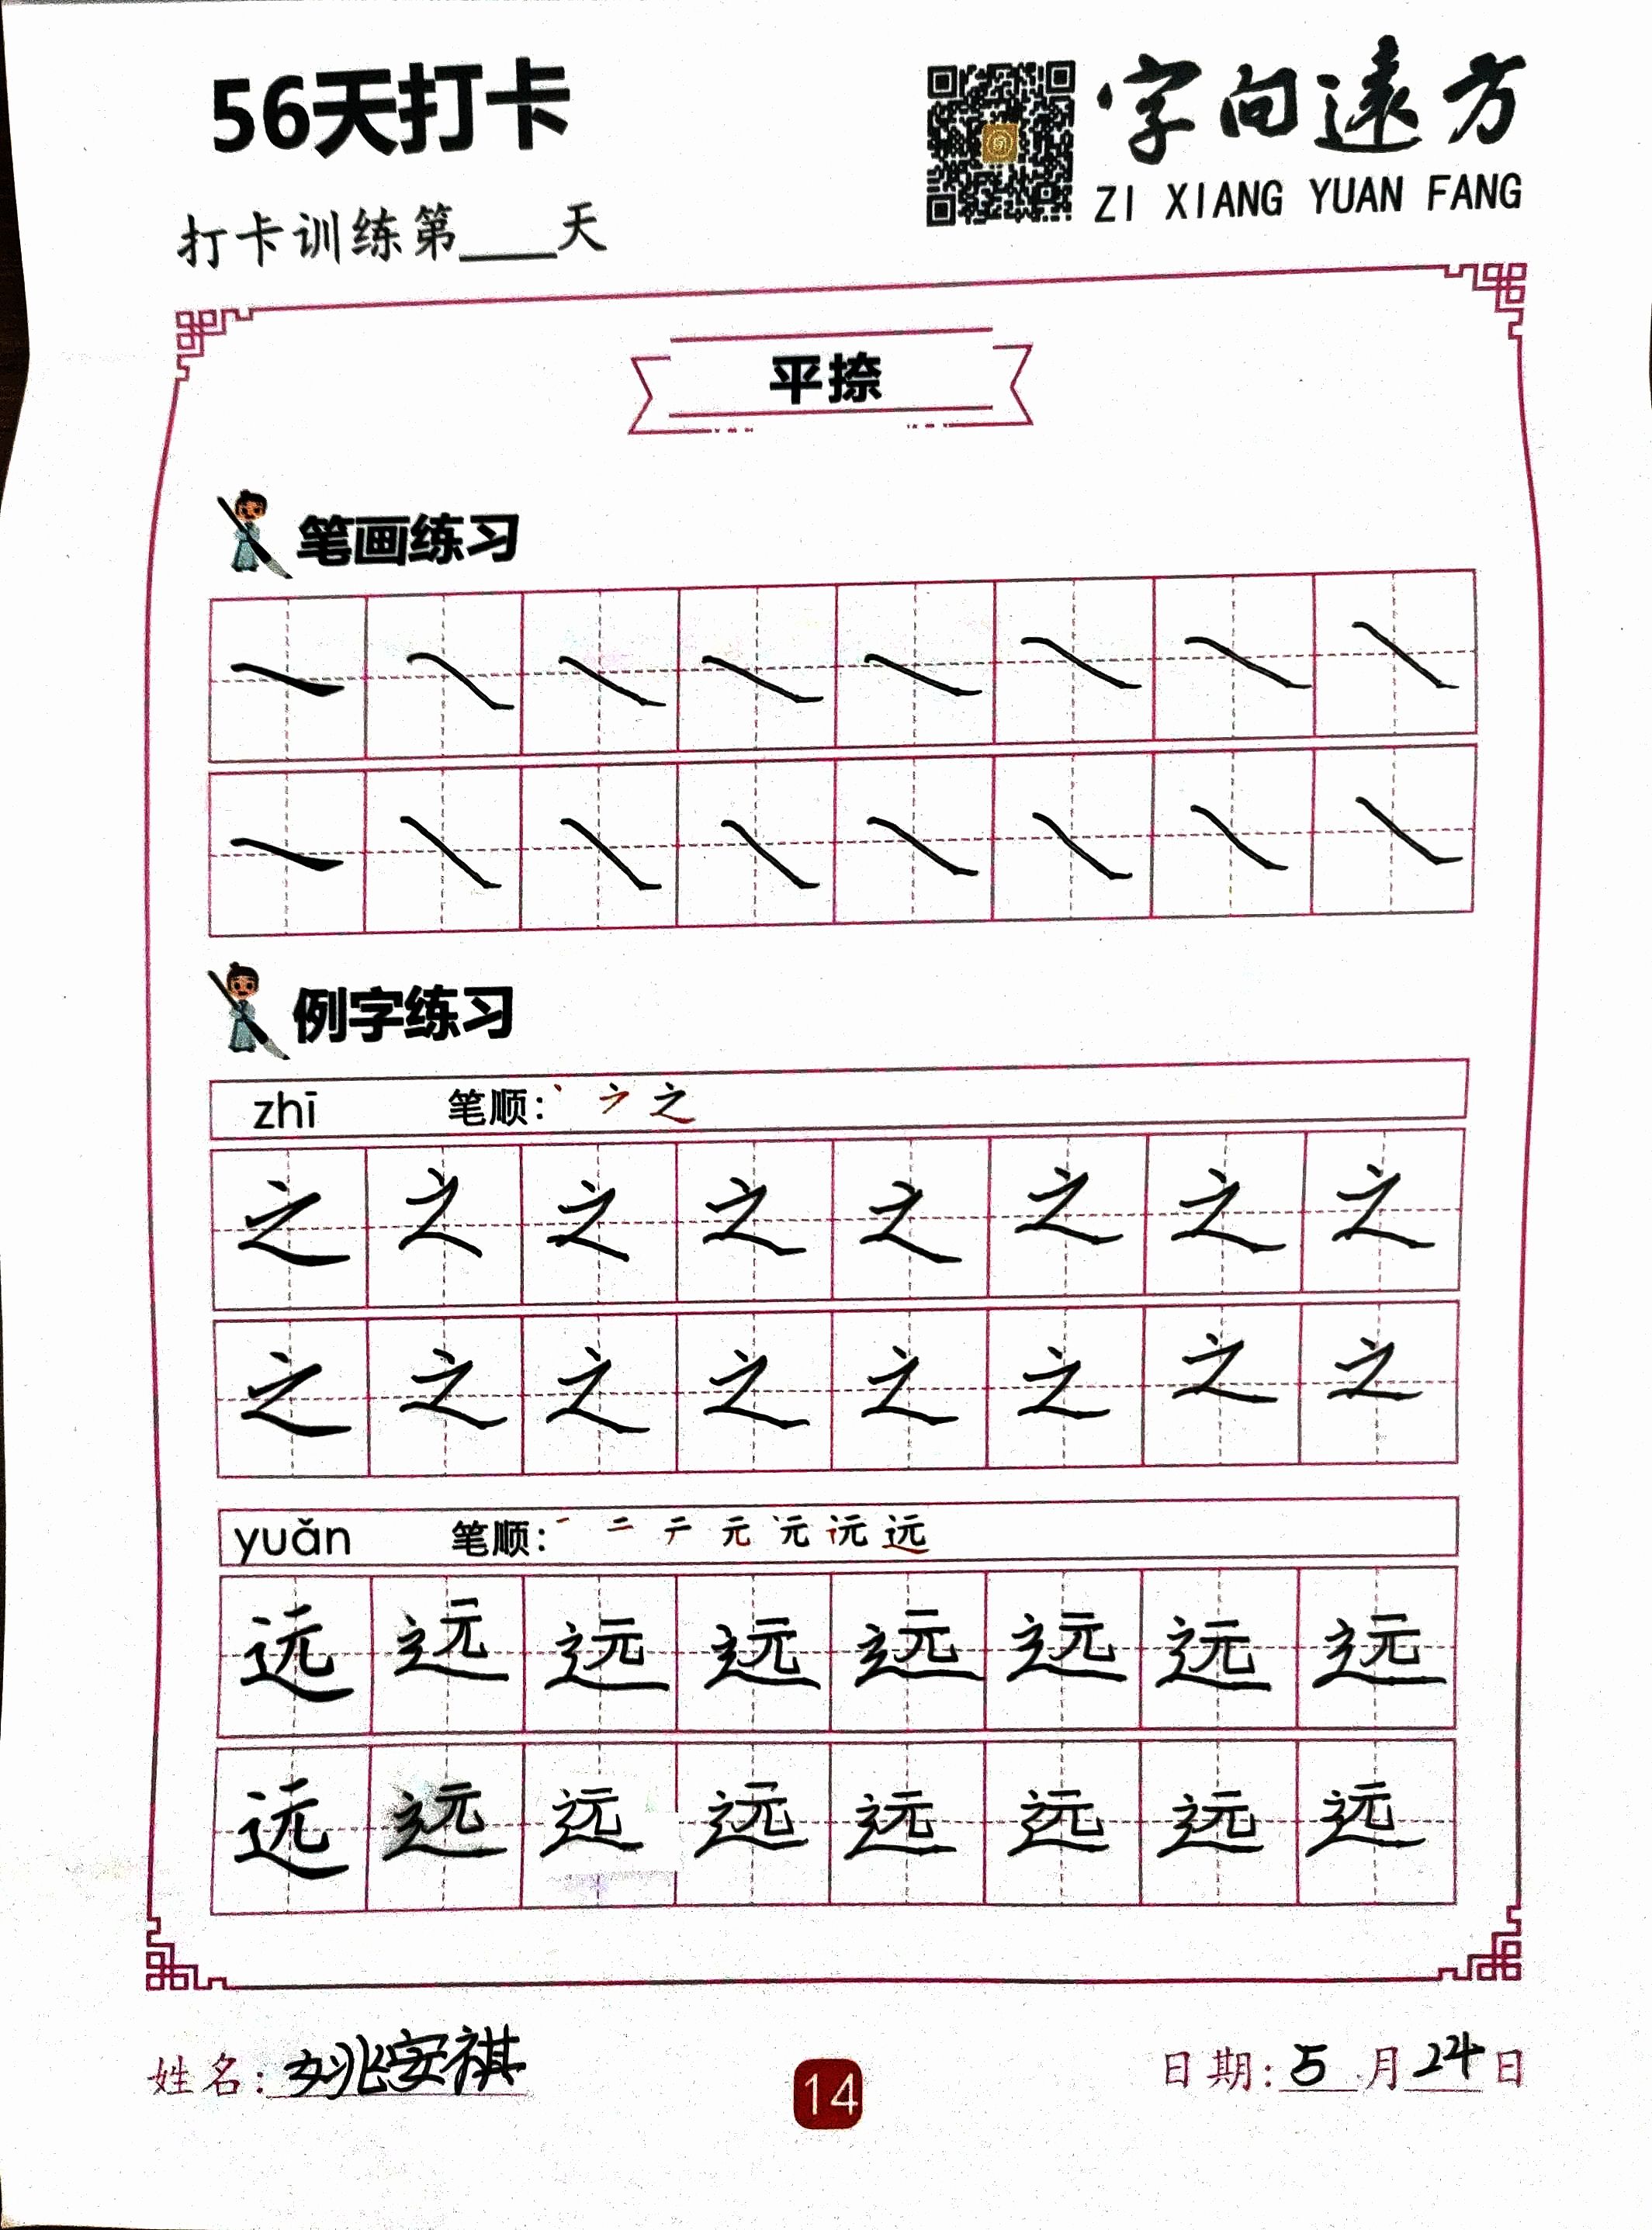 56天打卡
字向遠方
ZI XIANG YUAN FANG
打卡训练第____天
平捺
笔画练习
例字练习
zhī 笔顺: 丶 之
之 之 之 之 之 之 之 之
之 之 之 之 之 之 之 之
yuǎn 笔顺: 一 二 テ 元 远
远 远 远 远 远 远 远 远
远 远 远 远 远 远 远 远
姓名: 姚安祺
14
日期: 5 月 24 日